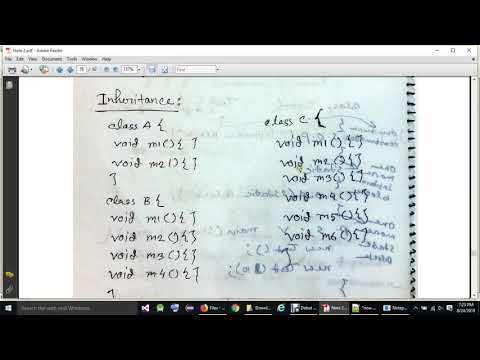 Note 2.pdf - Adobe Reader
File Edit View Document Tools Window Help
Find
Inheritance:
class A {
void m1(){ }
void m2(){ }
}
class B {
void m1(){}
void m2(){}
void m3(){}
void m4(){}
}
class C {
void m1(){}
void m2(){}
void m3(){}
void m4(){}
void m5(){}
void m6(){}
main ()
new Test ();
new Test (10);
Search the web and Windows
Downl...
Debut ...
Note 2...
*new ...
Notep...
7:23 PM
8/24/2019